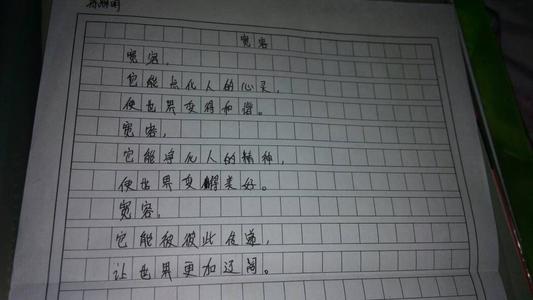 宽容
宽容，
它能点化人的心灵，
使世界变得和谐。
宽容，
它能净化人的精神，
使世界变得美好。
宽容，
它能被彼此传递，
让世界更加辽阔。